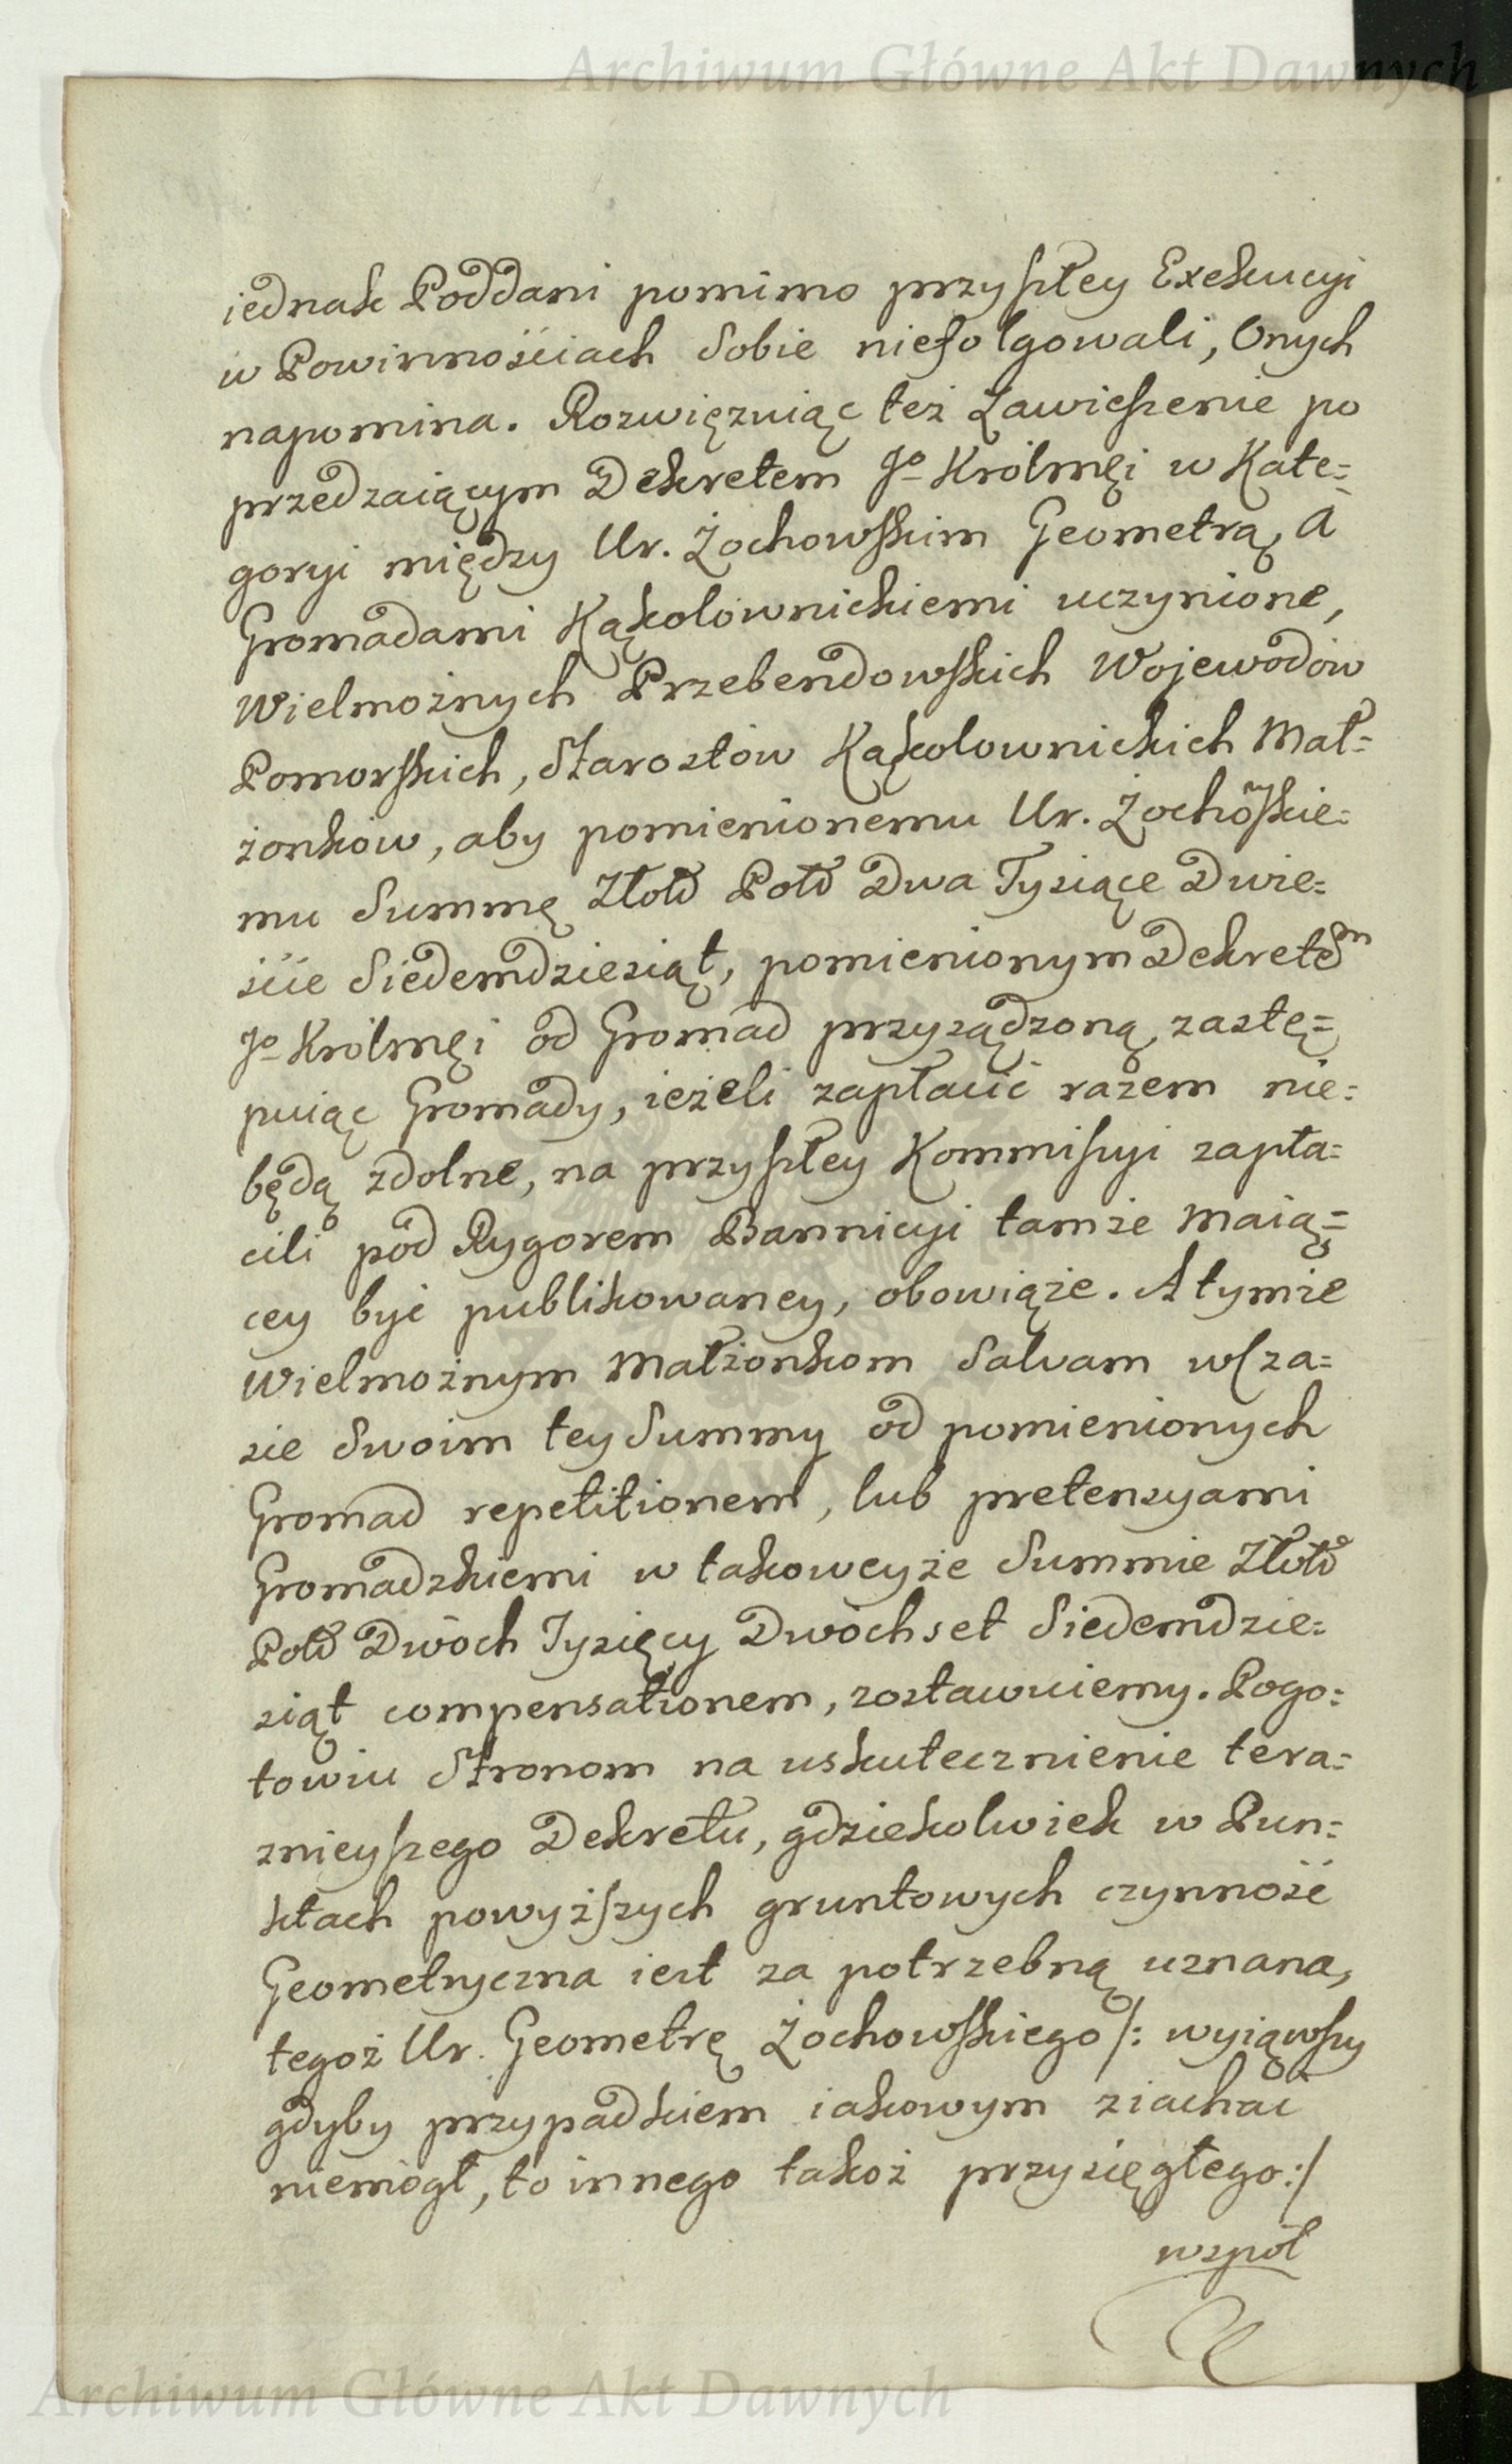 Archiwum Główne Akt Dawnych
iednak Poddani pomimo przyszłey Exekucyi
w Powinnościach Sobie niefolgowali, Onych
napomina. Rozwięzuiąc też Zawieszenie po
przedzaiącym Dekretem Jo Krolmęi w Kate=
goryi między Ur. Żochowskim Geometrą, A
Gromadami Kąkolownickiemi uczynione,
Wielmożnych Przebendowskich Wojewodow
Pomorskich, Starostow Kąkolownickich Mał=
żonkow, aby pomienionemu Ur. Żochowskie=
mu Summę Złotd Pold Dwa Tysiące Dwie=
scie Siedemdziesiąt, pomienionym Dekretem
Jo Krolmęi od Gromad przysądzoną, zastę=
puiąc Gromady, ieżeli zapłacić razem nie=
będą zdolne, na przyszłey Kommissyi zapła=
cili pod Rygorem Bannicyi tamże Maią=
cey być publikowaney, obowiąże. A tymże
Wielmożnym Małżonkom Salvam wsza=
sie Swoim tey Summy od pomienionych
Gromad repetitionem, lub pretensyami
Gromadzkiemi w takoweyże Summie Złotd
Pold Dwóch Tysięcy Dwóchset Siedemdzie=
siąt compensationem, zostawuiemy. Pogo=
towiu Stronom na uskutecznienie tera=
znieyszego Dekretu, gdziekolwiek w Pun=
ktach powyższych gruntowych czynność
Geometryczna iest za potrzebną uznana,
tegoż Ur. Geometrę Żochowskiego /: wyiąwszy
gdyby przypadkiem iakowym ziachać
niemogł, to innego takoż przysięgłego :/
wspol
Archiwum Główne Akt Dawnych